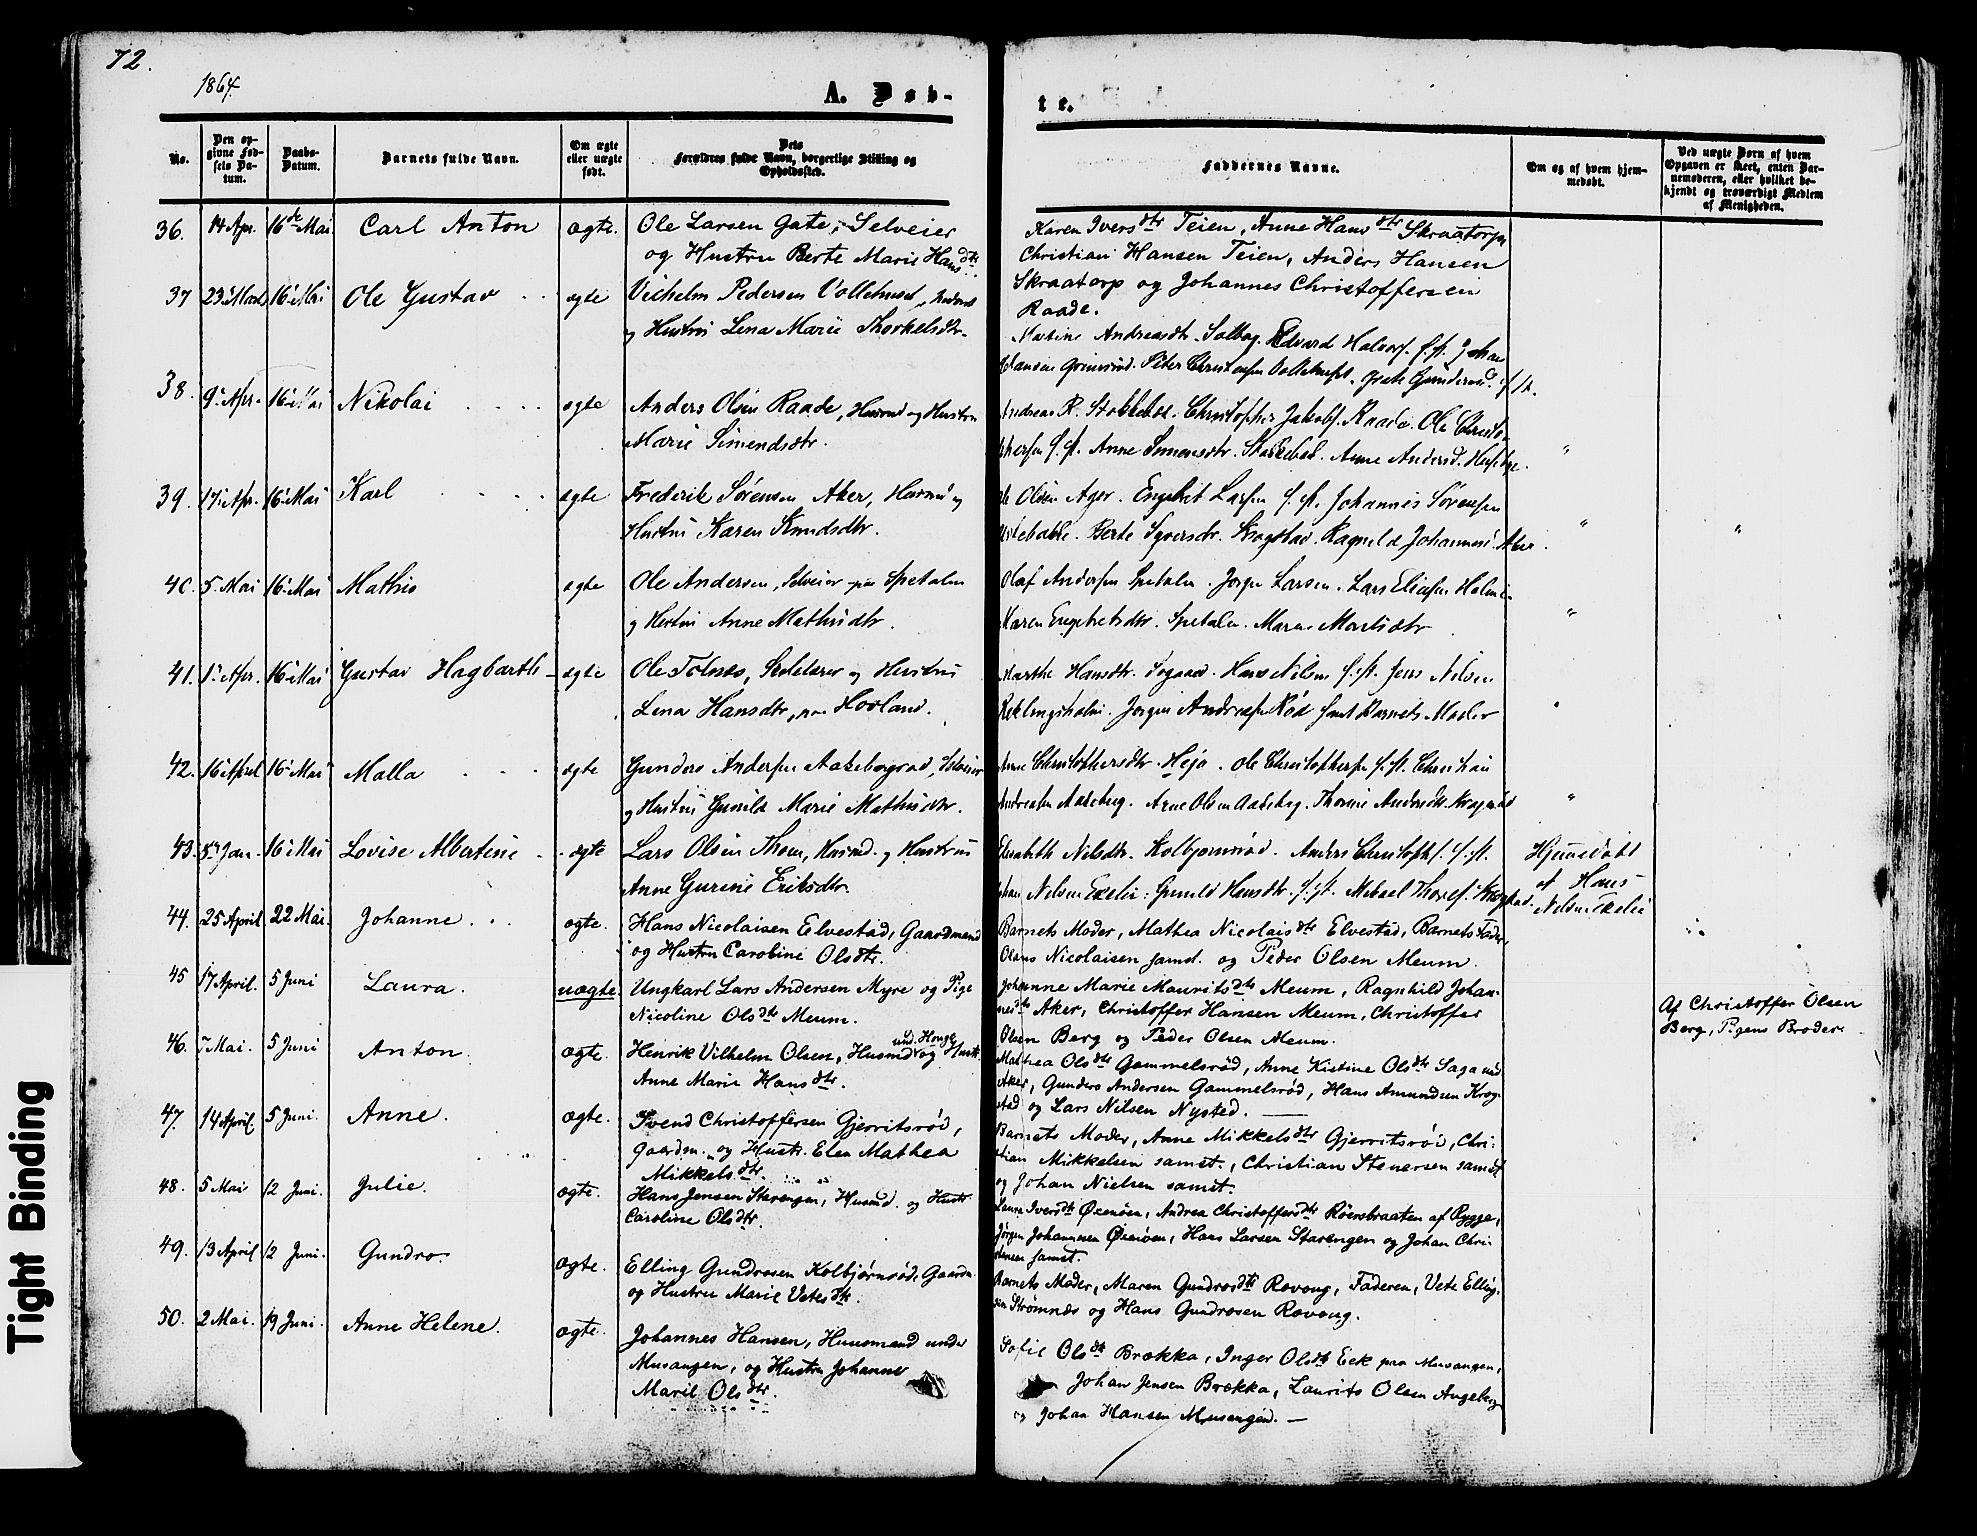 72.
1864.
A. Døb-
te.
No.
Den opgivne Fødsels Datum.
Daabs-Datum.
Barnets fulde Navn.
Om ægte eller uægte født.
Dets Forældres fulde Navn, borgerlige Stilling og Opholdssted.
Faddernes Navne.
Om og af hvem hjemmedøbt.
Ved uægte Børn af hvem Opgaven er skeet, enten Barnemoderen, eller hvilket bekjendt og troværdigt Medlem af Menigheden.
36. 14 Apr. 16de Mai Carl Anton ægte. Ole Larsen Gate, Selveier
og Hustru Berte Marie Hansdtr.
Karen Iversdtr Teien, Anne Hansdtr Skraatorp
Christian Hansen Teien, Anders Hansen
Skraatorp og Johannes Christoffersen
Raade.
37 23 Mart 16 Mai Ole Gustav ægte Vilhelm Pedersen Vollehuset
og Hustru Lena Marie Thorkelsdtr.
Andreasdtr. Solberg. Edvard
Hansen Grimsrød. Peter Christensen
38. 9 Apr. 16 Mai Nikolai ægte Anders Olsen Raade, Husmd og Hustru
Marie Simensdtr.
Andreas R. Christopher Jakobs. Raade. Ole Christo-
phersen s. st. Anne Simensdtr. Anne Andersd.
39. 17 Apr. 16 Mai Karl ægte Frederik Sørensen Aker, Husmd og
Hustru Karen Knudsdtr.
Ole Olsen Ager. Engebret Larsen s. st. Johannes Sørensen
Berte Syversdtr. Krogstad. Ragnild Johannesd. Aker.
40. 5 Mai 16 Mai Mathis ægte Ole Andersen, Selveier paa Spetalen
og Hustru Anne Mathisdtr.
Olaf Andersen Spetalen. Jørgen Larsen. Lars Eliasen Holme
Karen Engebretsdtr. Spetalen. Maren Martisdtr
41. 1 Apr. 16 Mai Gustav Hagbarth ægte Ole Tofnes, Skolelærer og Hustru
Lena Hansdtr, paa Hovland.
Marthe Hansdtr. Hans Nilsen s. st. Jens Nilsen
Jørgen Andreasen Rød samt Barnets Moder
42. 16 April 16 Mai Malla ægte Gunders Andersen Aakebergrød, Selveier
og Hustru Gunild Marie Mathisdtr.
Anne Christophersdtr. Høja. Ole Christophersen s. st. Christian
Andreasen Aakeberg. Arne Olsen Aakeberg. Thorine Andersdtr. Kragerød
43. Jan. 16 Mai Lovise Albertine ægte Lars Olsen Thom, Husmd. og Hustru
Anne Gurine Eriksdtr.
Elisabeth Nilsdtr. Kolbjørnsrød. Anders Christoph. s. st.
Hans Nilsen Exelie. Gunild Hansdtr. s. st. Mikael Thores. Krogstad.
Hjemmedøbt
af Hans
Nilsen Exelie
44. 25 April 22 Mai Johanne ægte. Hans Nicolaisen Elvestad, Gaardmand
og Hustru Caroline Olsdtr.
Barnets Moder, Mathea Nicolaisdtr Elvestad, Barnets Fader,
Olaus Nicolaisen samst. og Peder Olsen Meum.
45 17 April. 5 Juni Laura. uægte. Ungkarl Lars Andersen Myre og Pige
Nicoline Olsdtr Meum.
Johanne Marie Mauritsdtr Meum, Ragnhild Johan-
nesdtr Aker, Christoffer Hansen Meum, Christoffer
Olsen Berg og Peder Olsen Meum.
Af Christoffer Olsen
Berg, Pigens Broder.
46. 7 Mai. 5 Juni Anton. ægte. Henrik Vilhelm Olsen, Husmd und. Hauge og Hustr.
Anne Marie Hansdtr.
Mathea Olsdtr Gammelsrød, Anne Kistine Olsdtr Saga und
Aker, Gunders Andersen Gammelsrød, Hans Amundsen Krog-
stad og Lars Nilsen Nysted.
47. 14 April. 5 Juni. Anne. ægte. Svend Christoffersen Gjerritsrød,
Gaardm. og Hustr. Elen Mathea
Mikkelsdtr.
Barnets Moder, Anne Mikkelsdtr Gjerritsrød, Chri-
stian Mikkelsen samst., Christian Stenersen samst
og Johan Nielsen samst.
48. 5 Mai 12 Juni. Julie. ægte. Hans Jensen Starengen, Husmd. og Hustr
Caroline Olsdtr.
Laura Iversdtr Øxenøen, Andrea Christoffersdtr Røersbraaten af Rygge,
Jørgen Johannesen Øxenøen, Hans Larsen Starengen og Johan Chri-
stensen samst.
49. 13 April 12 Juni. Gundro. ægte. Elling Gundrosen Kolbjørnsød, Gaardm.
og Hustru Marie Vetesdtr.
Barnets Moder, Maren Gundrosdtr Rovoug, Faderen, Vete Elling-
sen Strømnæs og Hans Gundrosen Rovoug.
50. 2 Mai. 19 Juni. Anne Helene. ægte. Johannes Hansen, Huusmand under
Musangen, og Hustru Johanne
Marie Olsdtr.
Sofie Olsdtr Brekka, Inger Olsdtr Eek paa Musangen,
Johan Jensen Brekka, Laurits Olsen Augeberg
og Johan Hansen Musangen.
Tight Binding